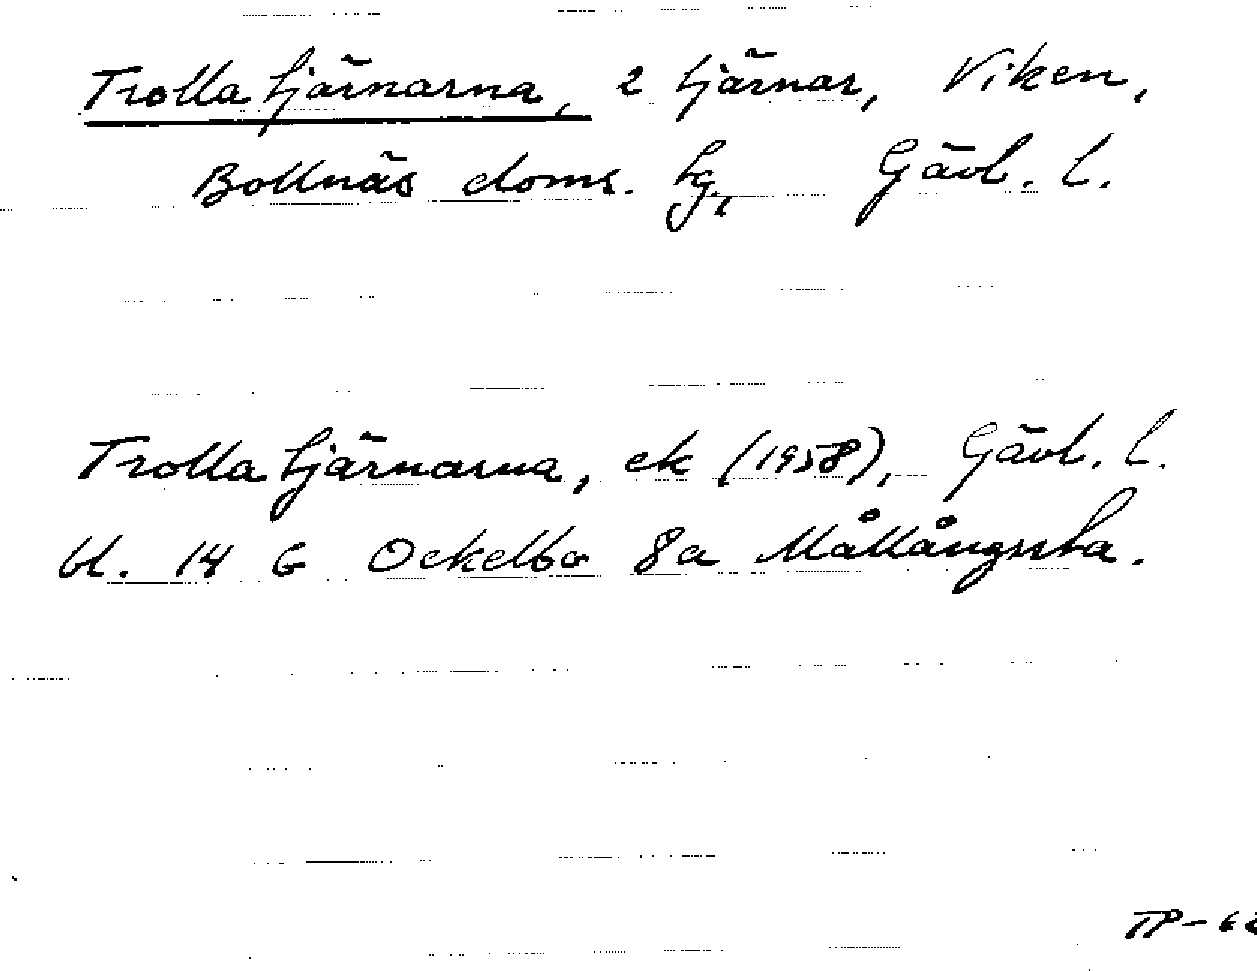 Trollatjärnarna, 2 tjärnar, Viken,
Bollnäs doms. tg, Gävl. l.
Trollatjärnarna, ek (1958), Gävl. l.
bl. 14 G Ockelbo 8a Mållångssta.
TP-62